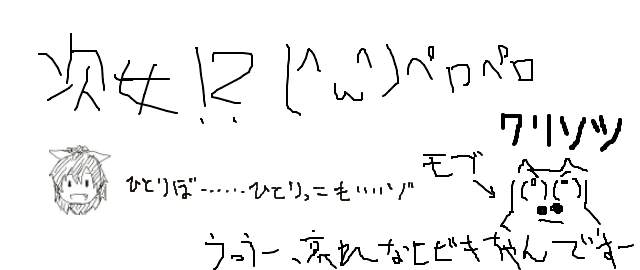 次女!? (^ω^)ペロペロ
クリソツ
モブ
ひとりぼ……ひとりっこも……
うっうー、哀れなヒビキちゃんですー